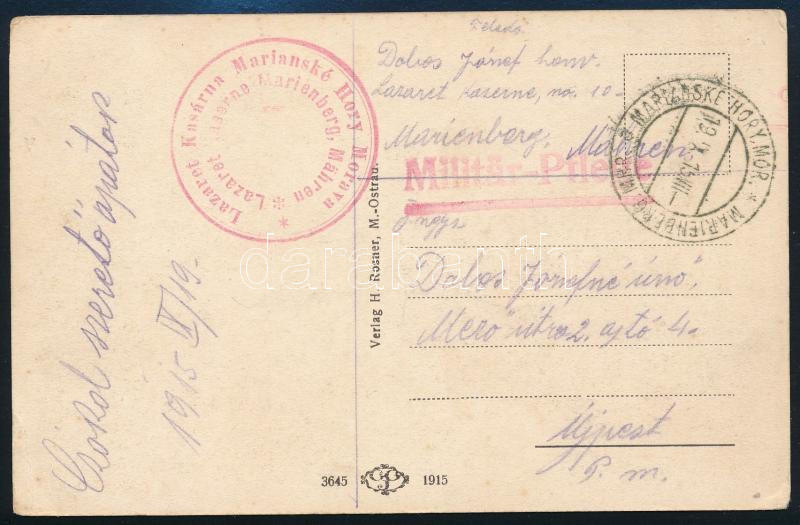 Csókol szerető apátok
1915 IX/19.
Lazaret Kasárna Marianské Hory Morava
Lazaret Kaserne Marienberg, Mähren
Feladó
Dobos József honv.
Lazaret kaserne, no. 10-
Marienberg, Mähren
Militär-Pflege
MARIANSKÉ HORY, MOR. * MARIENBERG, MÄHR.
Dobos Józsefné úrnő
Mező utca 2. ajtó 4-
Ujpest
P. m.
Verlag H. Rosner, M.-Ostrau.
3645 1915
darabanth